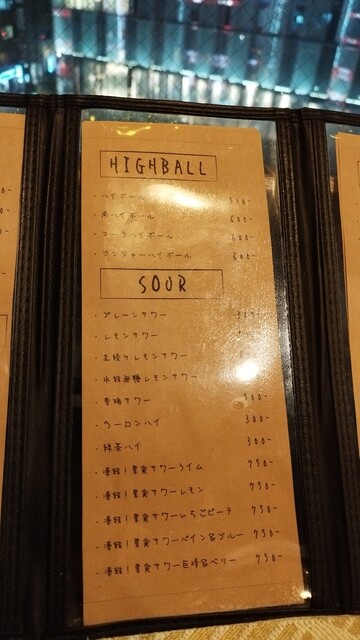 HIGHBALL
・ハイボール
・角ハイボール 600-
・コーラハイボール 600-
・ジンジャーハイボール 600-
SOUR
・プレーンサワー
・レモンサワー
・生絞りレモンサワー
・レモンサワー
サワー 500-
・ウーロンハイ 300-
・緑茶ハイ 300-
・凍結!果実サワーライム 750-
・凍結!果実サワーレモン 750-
・凍結!果実サワーいちごピーチ 750-
・凍結!果実サワーパイン&ブルー 750-
・凍結!果実サワー巨峰&ベリー 750-